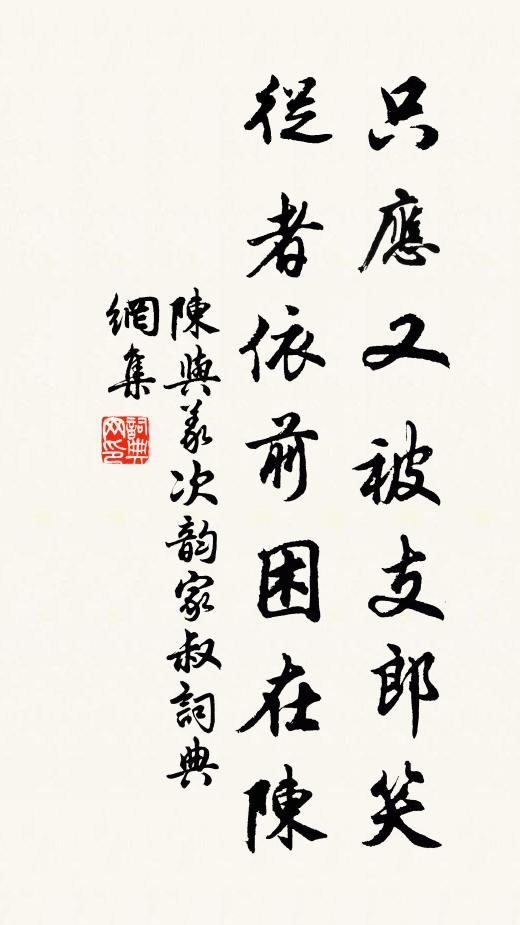 只應又被支郎笑
從者依前困在陳
陳與義次韵家叔詞典
網集
詞典
網印